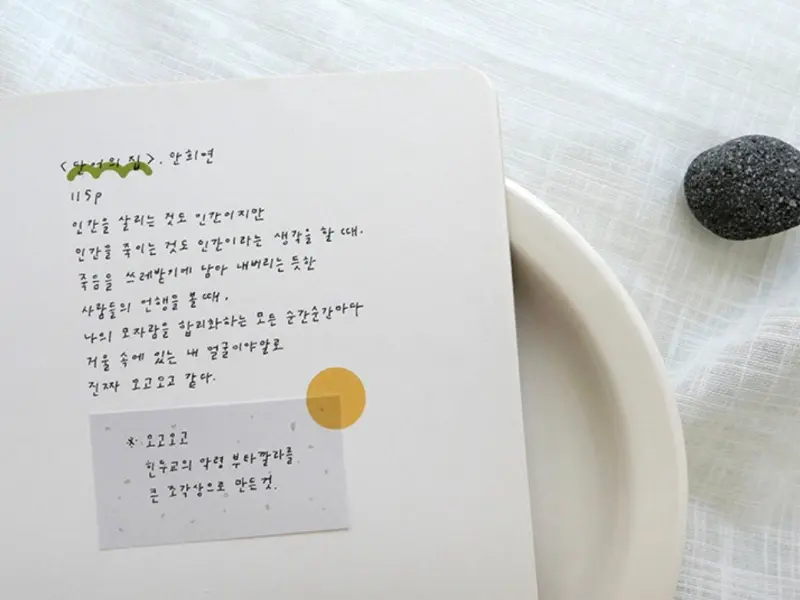 <단어의 집>. 안희연
115p
인간을 살리는 것도 인간이지만
인간을 죽이는 것도 인간이라는 생각을 할 때.
죽음을 쓰레받기에 담아 내버리는 듯한
사람들의 언행을 볼 때.
나의 모자람을 합리화하는 모든 순간순간마다
거울 속에 있는 내 얼굴이야말로
진짜 오고오고 같다.
※ 오고오고
힌두교의 악령 부타깔라를
큰 조각상으로 만든 것.